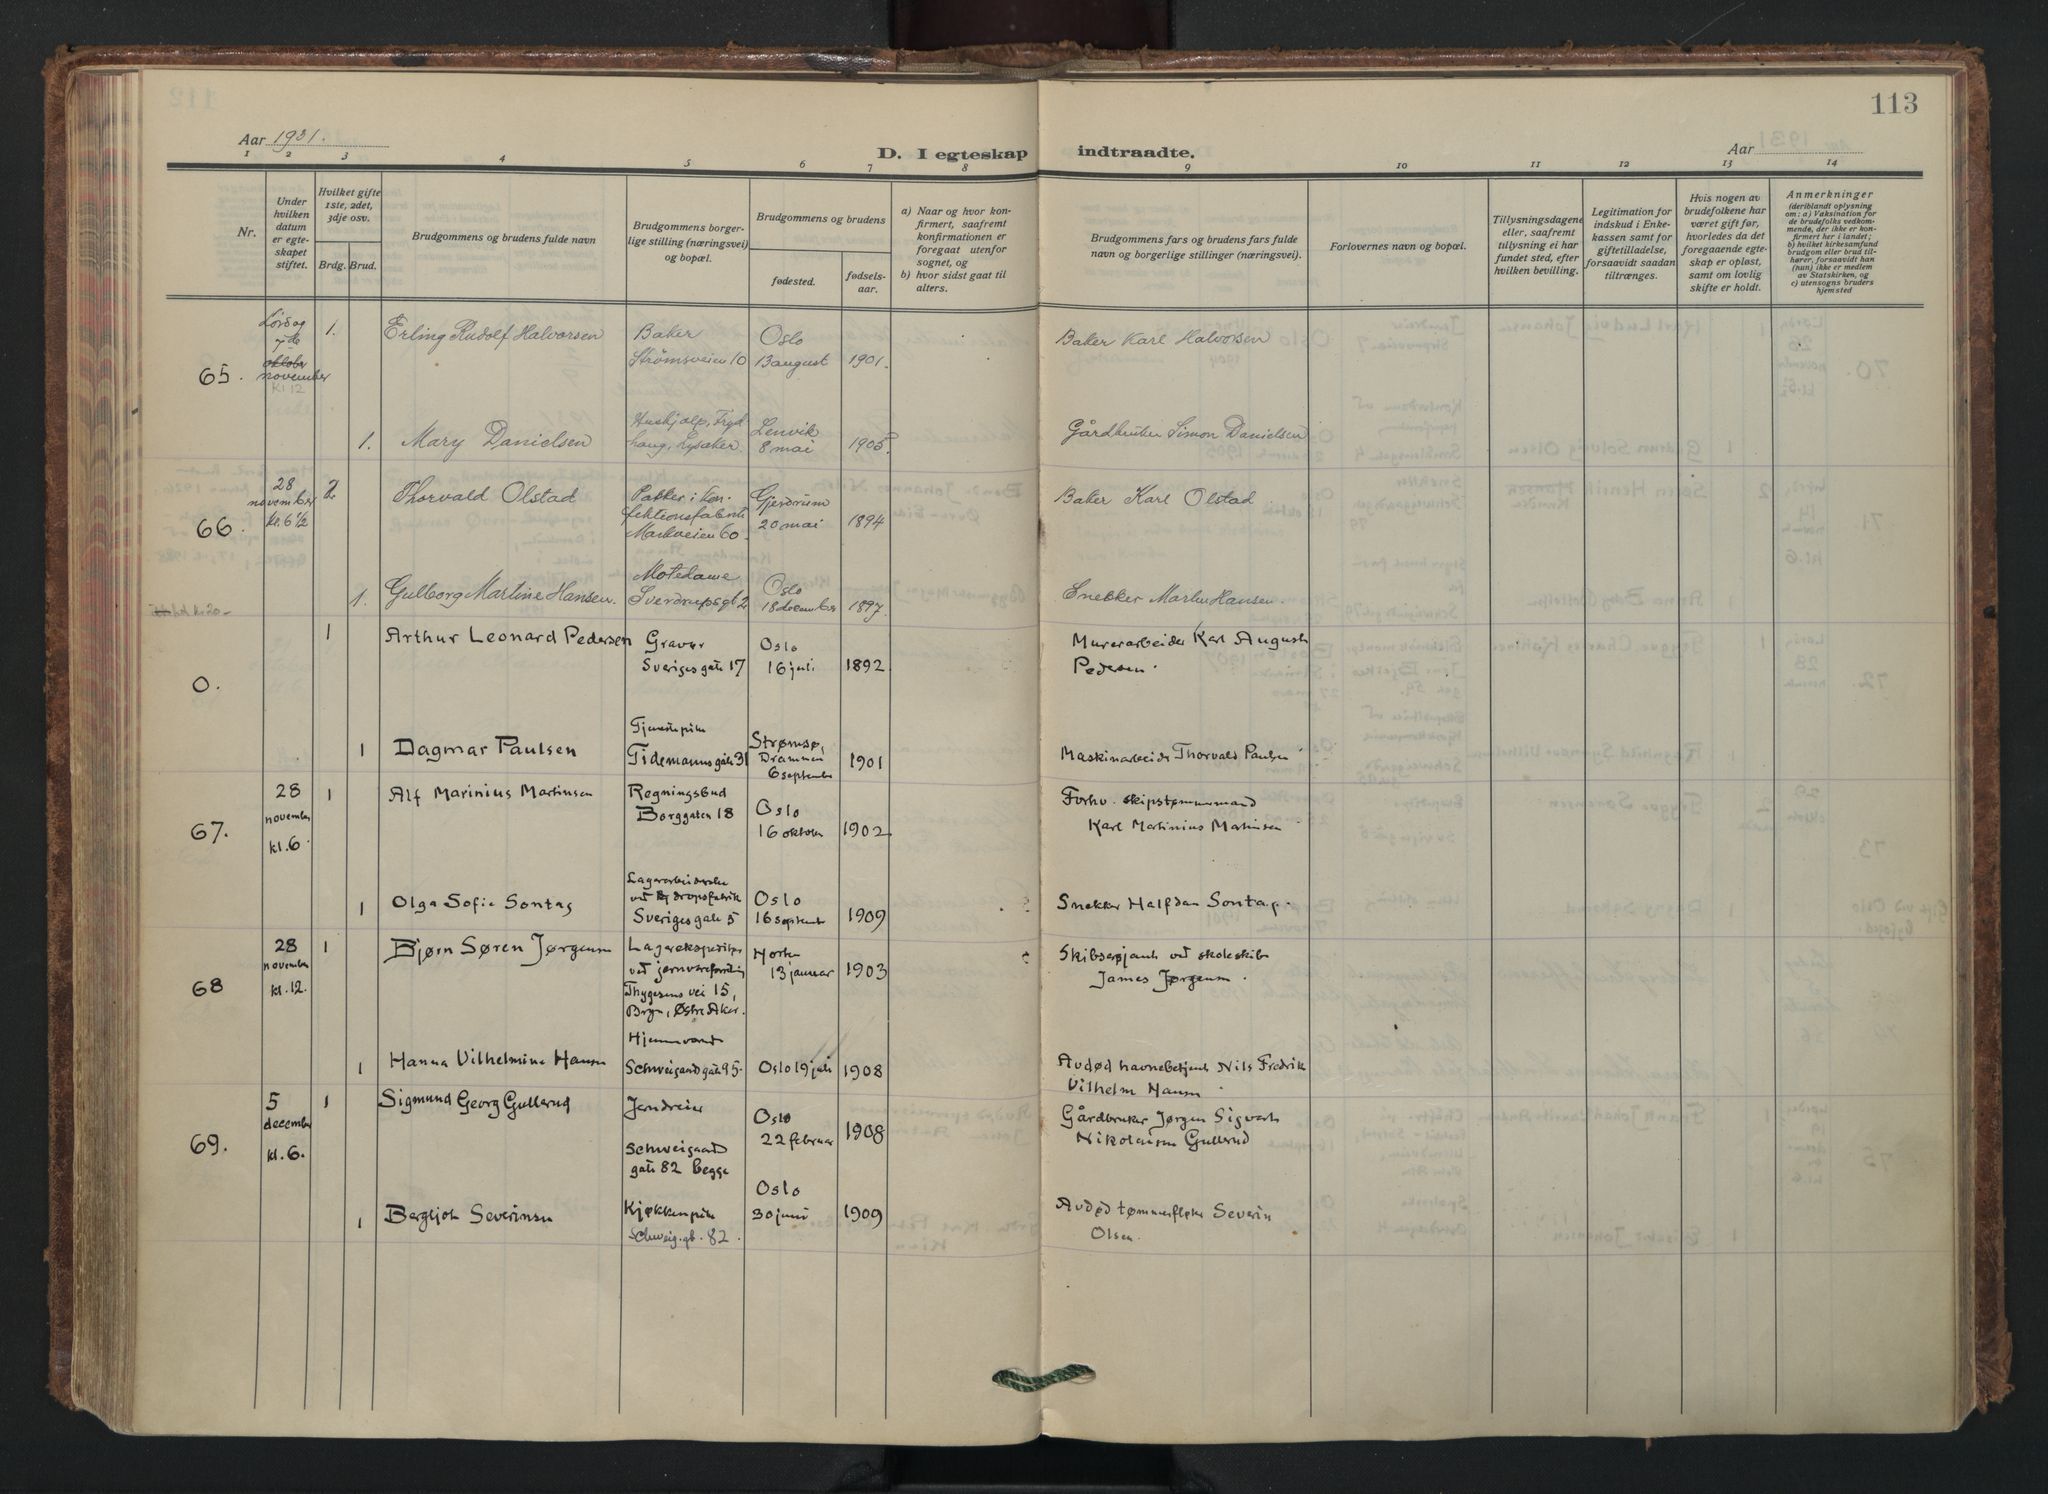 113
Aar 1931.
D. I egteskap indtraadte.
Aar
1 2 3 4 5 6 7 8 9 10 11 12 13 14
Nr.
Under
hvilken
datum
er egte-
skapet
stiftet.
Hvilket gifte
1ste, 2det,
3dje osv.
Brdg. Brud.
Brudgommens og brudens fulde navn
Brudgommens borger-
lige stilling (næringsvei)
og bopæl.
Brudgommens og brudens
fødested.
fødsels-
aar.
a) Naar og hvor kon-
firmert, saafremt
konfirmationen er
foregaat utenfor
sognet, og
b) hvor sidst gaat til
alters.
Brudgommens fars og brudens fars fulde
navn og borgerlige stillinger (næringsvei).
Forlovernes navn og bopæl.
Tillysningsdagene
eller, saafremt
tillysning ei har
fundet sted, efter
hvilken bevilling.
Legitimation for
indskud i Enke-
kassen samt for
giftetilladelse,
forsaavidt saadan
tiltrænges.
Hvis nogen av
brudefolkene har
været gift før,
hvorledes da det
foregaaende egte-
skap er opløst,
samt om lovlig
skifte er holdt.
Anmerkninger
(deriblandt oplysning
om: a) Vaksination for
de brudefolks vedkom-
mende, der ikke er kon-
firmert her i landet;
b) hvilket kirkesamfund
brudgom eller brud til-
hører, forsaavidt han
(hun) ikke er medlem
av Statskirken, og
c) utensogns bruders
hjemsted
65.
Lørdag
7de
oktober
november
Kl 12
1.
Erling Rudolf Halvorsen
Baker
Strømsveien 10
Oslo
13 august
1901.
Baker Karl Halvorsen
1.
Mary Danielsen
Hushjælp, Fryd
haug, Lysaker.
Lenvik
8 mai
1905
Gårdbruker Simon Danielsen
66.
28
november
kl. 6 1/2
2
Thorvald Olstad
Pakker i kon-
fektionsfabrik
Markveien 60.
Gjerdrum
20 mai
1894
Baker Karl Olstad
1.
Gulborg Martine Hansen.
Motedame
Sverdrupsgt 2
Oslo
18 december
1897
Snekker Martin Hansen.
0.
1
Arthur Leonard Pedersen
Gravør
Sverigesgate 17
Oslo
16 juli
1892
Murerarbeider Karl August
Pedersen.
1
Dagmar Paulsen
Tjenestepike
Tidemannsgate 31
Strømsø,
Drammen
6 september
1901
Maskinarbeider Thorvald Paulsen
67.
28
november
kl. 6
1
Alf Marinius Martinsen
Regningsbud
Borggaten 18
Oslo
16 oktober
1902
Forhv. skipstømmermand
Karl Martinius Martinsen
1
Olga Sofie Sontag
Lagerarbeiderske
ved dropsfabrik
Sverigesgate 5
Oslo
16 september
1909
Snekker Halfdan Sontag.
68
28
november
kl. 12.
1
Bjørn Søren Jørgensen
Lagerekspeditør
ved jernvareforretning
Thygesens vei 15,
Bryn, Østre Aker.
Horten
13 januar
1903
Skibsersjant ved skoleskib
James Jørgensen.
1
Hanna Vilhelmine Hansen
Hjemmeværende
Schweigaardsgate 95.
Oslo 19 juli
1908
Avdød havnebetjent Nils Fredrik
Vilhelm Hansen
69.
5
december
kl. 6.
1
Sigmund Georg Gullerud
Jerndreier
Schweigaards
gate 82 begge
Oslo
22 februar
1908
Gårdbruker Jørgen Sigvart
Nikolaisen Gullerud
1
Bergljot Severinsen
Kjøkkenpike
Schweig.gt. 82.
Oslo
30 juni
1909
Avdød tømmerfløter Severin
Olsen.